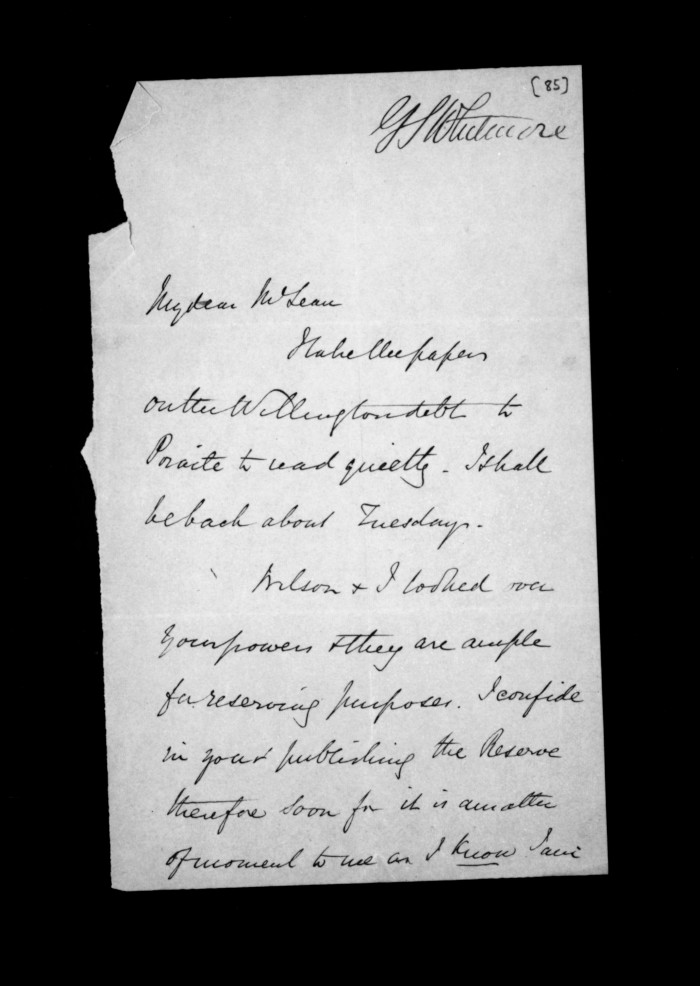 [85]
GSWhitmore
My dear McLean
I take the papers
on the Wellington debt to
to read quietly - I shall
be back about Tuesday -
Wilson & I looked over
your powers & they are ample
for reserving purposes. I confide
in your publishing the Reserve
therefore soon for it is a matter
of moment to me as I know I am